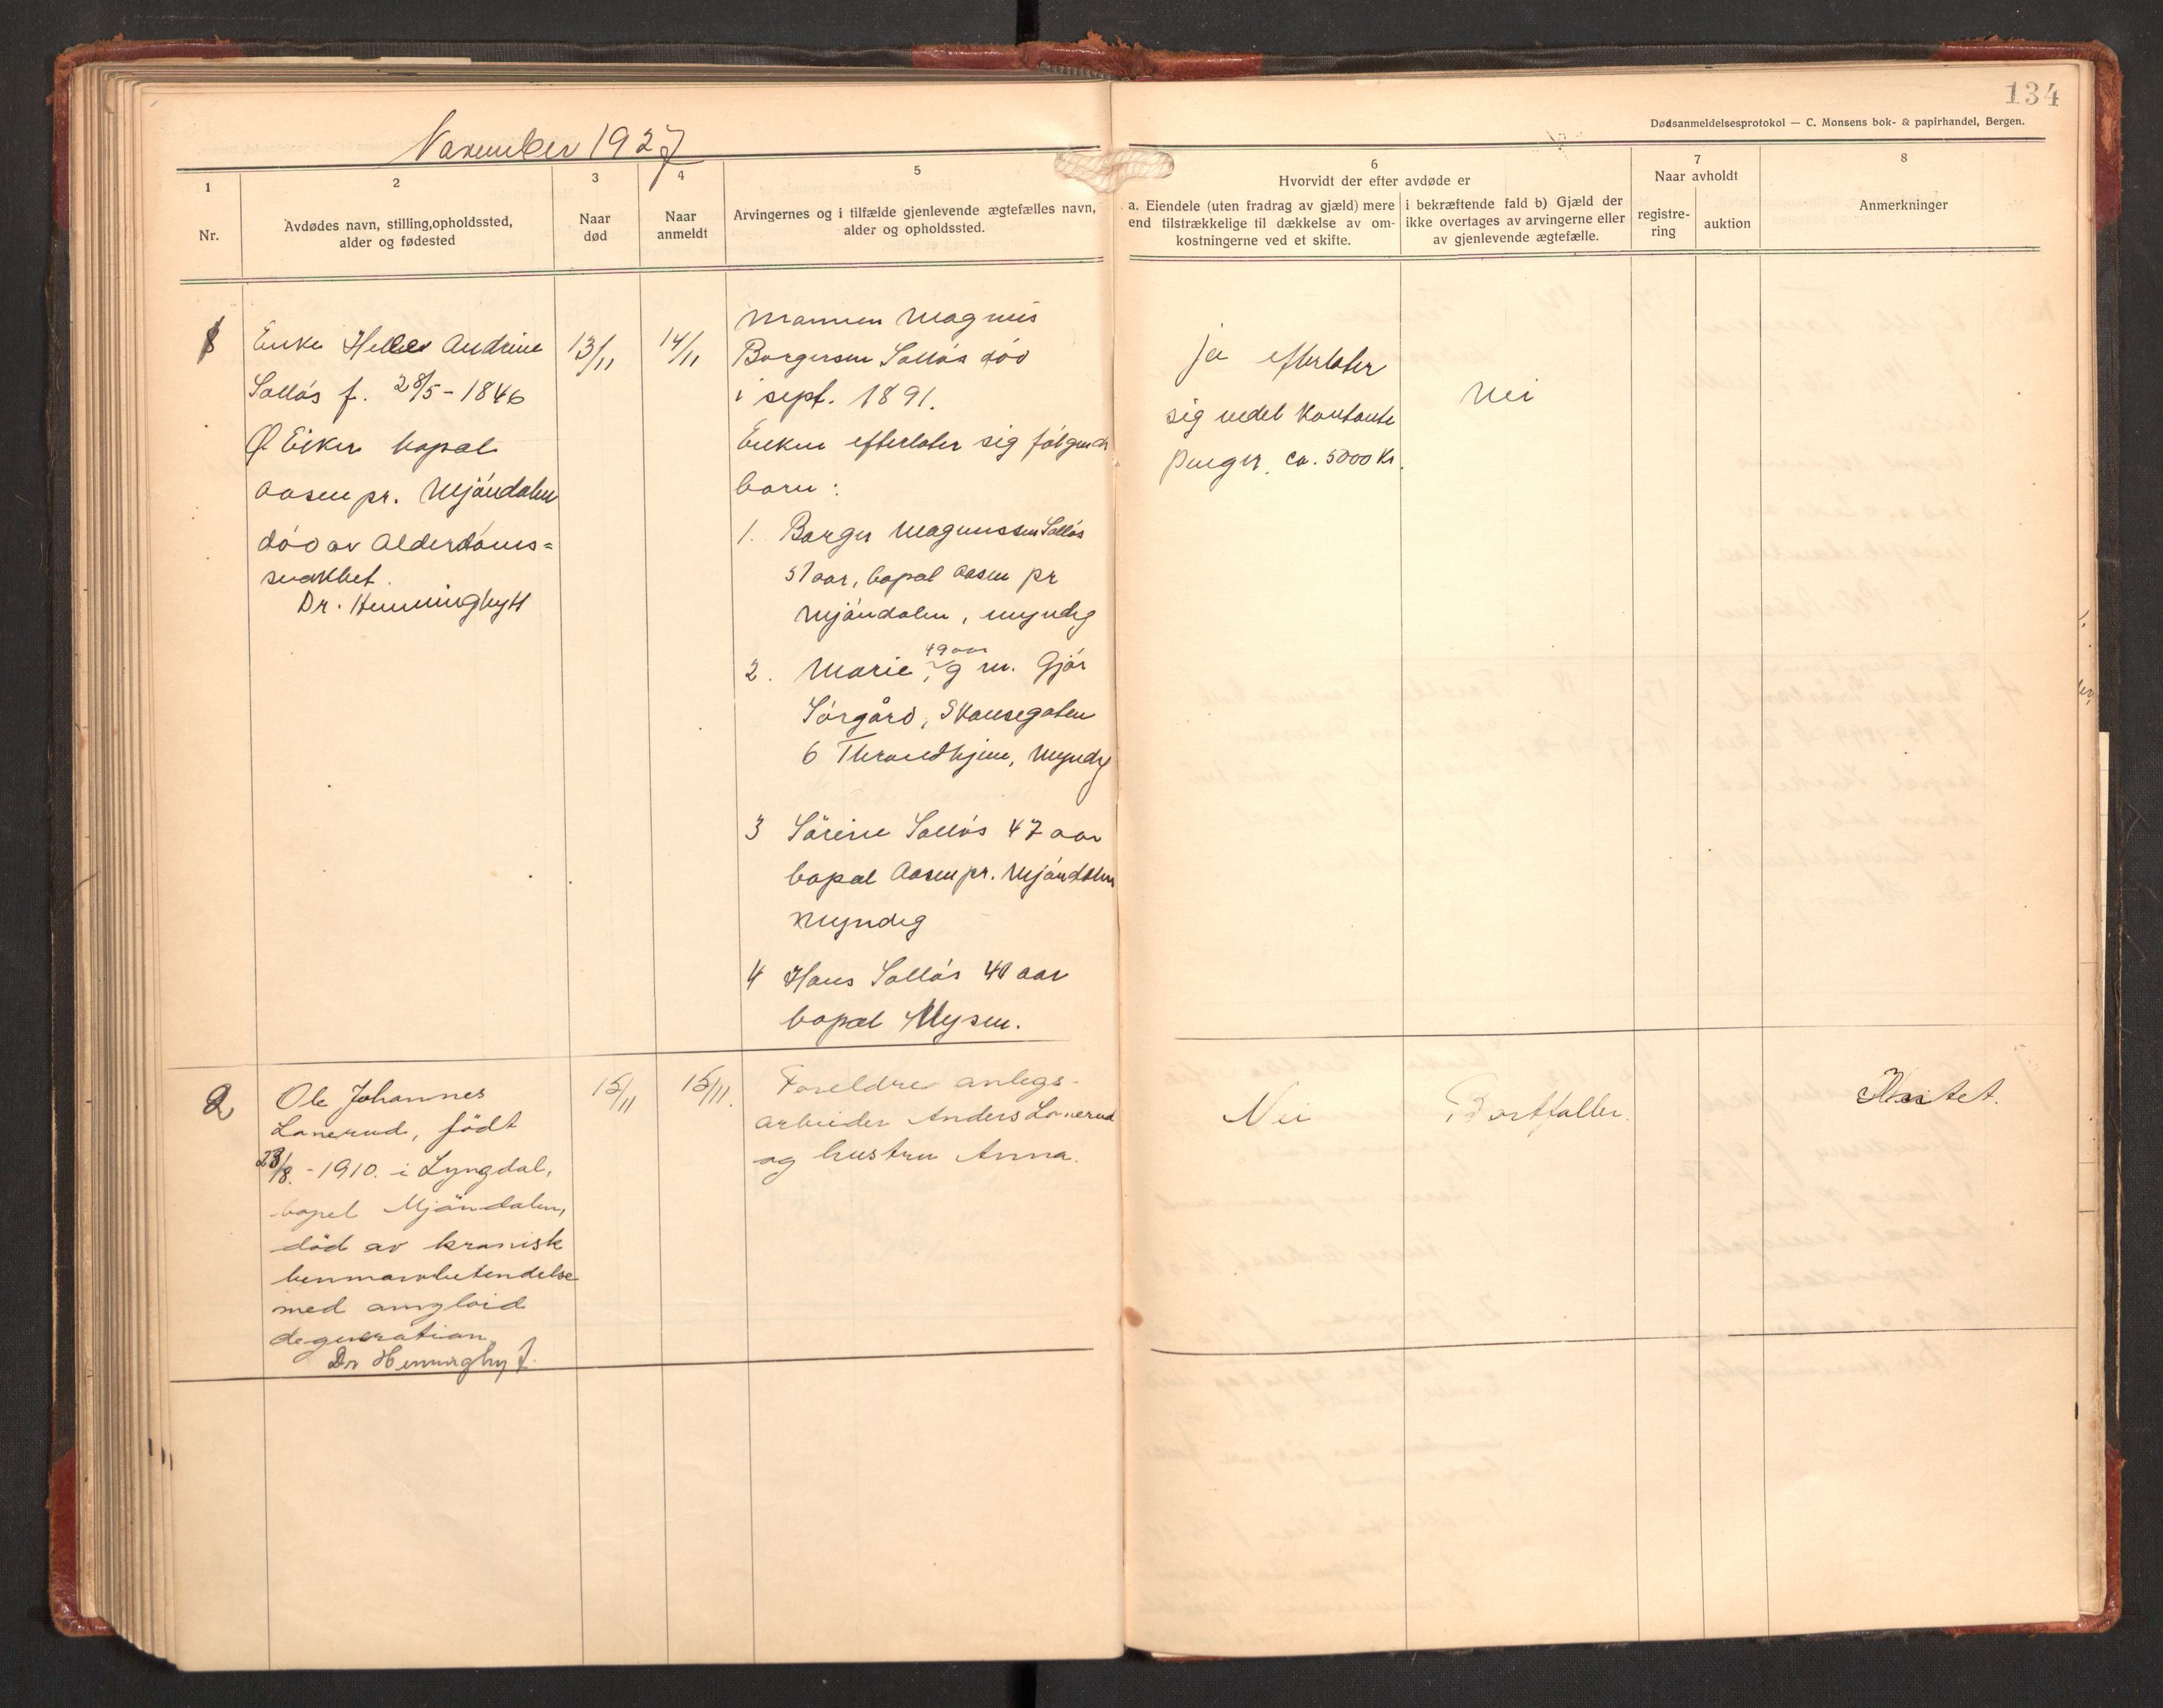 134
Dødsanmeldelsesprotokol — C. Monsens bok- & papirhandel, Bergen.
November 1927
1
Nr.
2
Avdødes navn, stilling,opholdssted,
alder og fødested
3
Naar
død
4
Naar
anmeldt
5
Arvingernes og i tilfælde gjenlevende ægtefælles navn,
alder og opholdssted.
6
Hvorvidt der efter avdøde er
a. Eiendele (uten fradrag av gjæld) mere
end tilstrækkelige til dækkelse av om-
kostningerne ved et skifte.
i bekræftende fald b) Gjæld der
ikke overtages av arvingerne eller
av gjenlevende ægtefælle.
7
Naar avholdt
registre-
ring
auktion
8
Anmerkninger
1
Enke Helle Andrine
Solløs f. 28/5 - 1846
Ø Eiker bopæl
Aasen pr. Mjøndalen
død av Alderdoms=
svakhet.
Dr. Henninghytt
13/11
14/11
Mannen Magnus
Borgersen Solløs død
i sept. 1891.
Enken efterlater sig følgende
barn:
1. Borger Magnussen Solløs
51 aar, bopæl Aasen pr
Mjøndalen, myndig
2. Marie, 49 aar g m. Gjør
Sørgård, Skansegaten
6 Throndhjem, Myndig
3 Sörine Solløs 47 aar
bopæl Aasen pr. Mjøndalen
Myndig
4 Hans Solløs 40 aar
bopæl Mysen.
ja efterlater
sig vedel Kontante
Penger ca. 5000 Kr.
Nei
2
Ole Johannes
Lonerud, födt
23/8. - 1910. i Lyngdal,
bopel Mjöndalen,
död av kronisk
benmarvbetendelse
med amyloid
degeneration.
Dr Henninghytt.
15/11
15/11.
Foreldre anlegs-
arbeider Anders Lonerud
og hustru Anna.
Nei
Bortfaller.